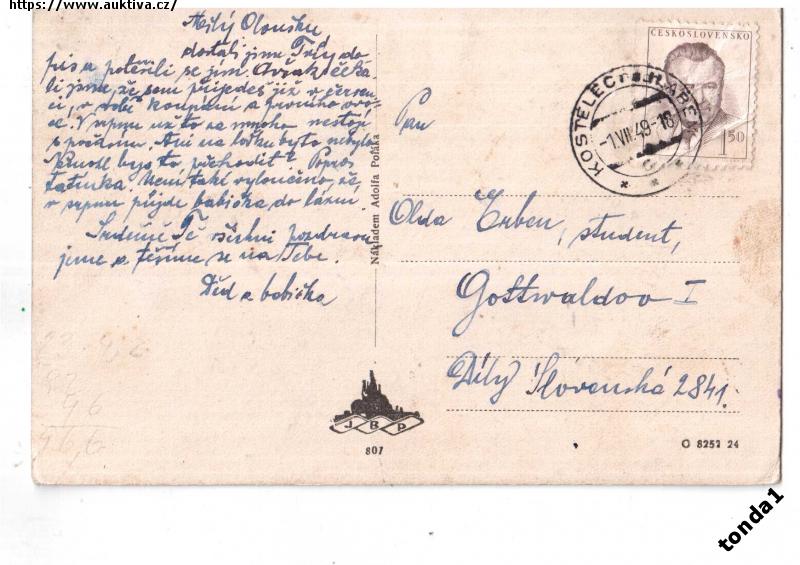 https://www.auktiva.cz/
Milý Oloušku
dostali jsme Tvůj do
pis a potěšili se jím. Avšak čeka
li jsme, že sem přijedeš již v červen
ci, v době koupání a prvního ovo
ce. V srpnu už to za mnoho nestojí
s počasím. Ani na loďku by to nebylo.
Nemohl bys to přehodit? Popros
tatínka. Není také vyloučeno, že
v srpnu půjde babička do lázní.
Srdečně Tě všichni pozdravu
jeme a těšíme se na Tebe.
Děd a babička
Nákladem Adolfa Poláka
ČESKOSLOVENSKO
1 50
KOSTELEC n. LAB.
-1.VII.49-18
Pan
Olda Erben, student,
Gottwaldov I
Díly Slovenská 2841.
JBP
807
O 8252 24
tonda1